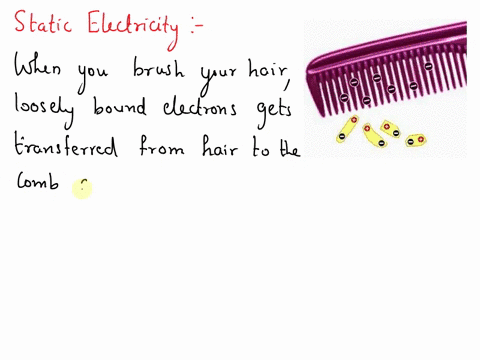 Static Electricity :-
When you brush your hair,
loosely bound electrons gets
transferred from hair to the
comb